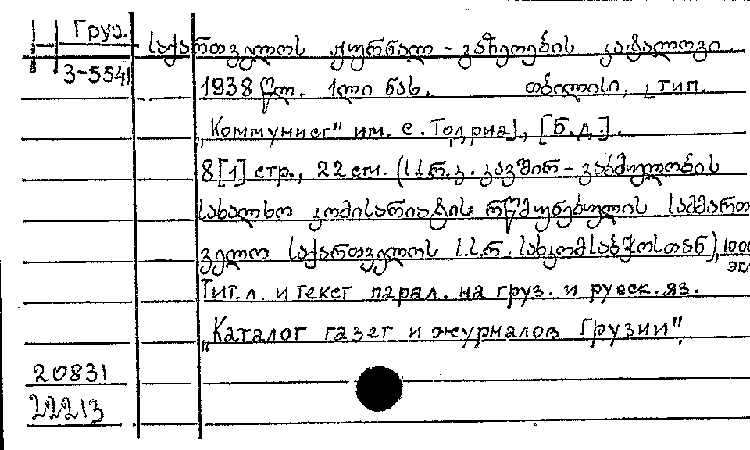 Груз.
3-5541
საქართველოს ჟურნალ-გაზეთების კატალოგი
1938 წლ. 1ლი ნახ. თბილისი, [тип.
„Коммунист" им. С. Тодриа], [Б.д.].
8[1] стр., 22 см. (ს.ს.რ.კ. კავშირ-გაბმულობის
სახალხო კომისარიატის რწმუნებულის სამმართ
ველო საქართველოს ს.ს.რ. სახკომსაბჭოსთან), 1000
экз
Тит. л. и текст парал. на груз. и русск. яз.
„Каталог газет и журналов Грузии"
20831
22213